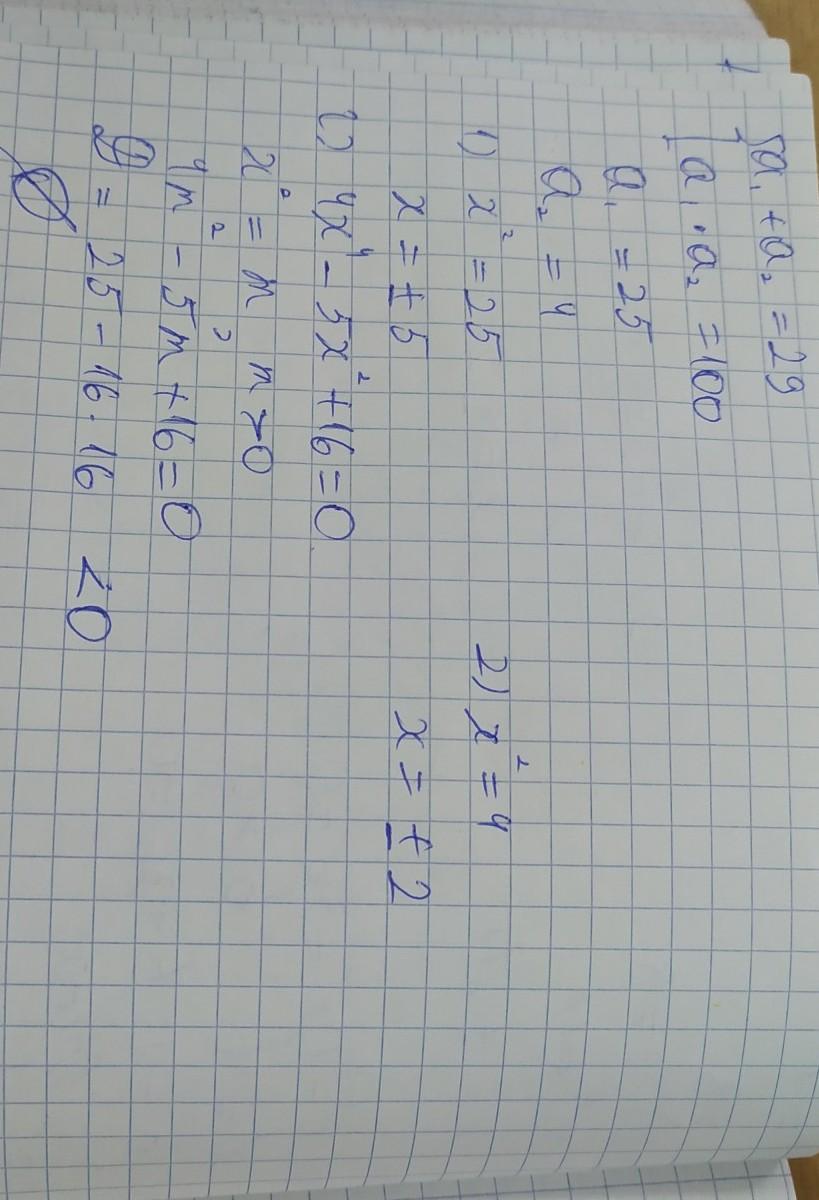 {a₁ + a₂ = 29
{a₁ · a₂ = 100
a₁ = 25
a₂ = 4
1) x² = 25 2) x² = 4
x = ±5 x = ±2
2) 4x⁴ - 5x² + 16 = 0
x² = m m > 0
4m² - 5m + 16 = 0
D = 25 - 16 · 16 < 0
∅